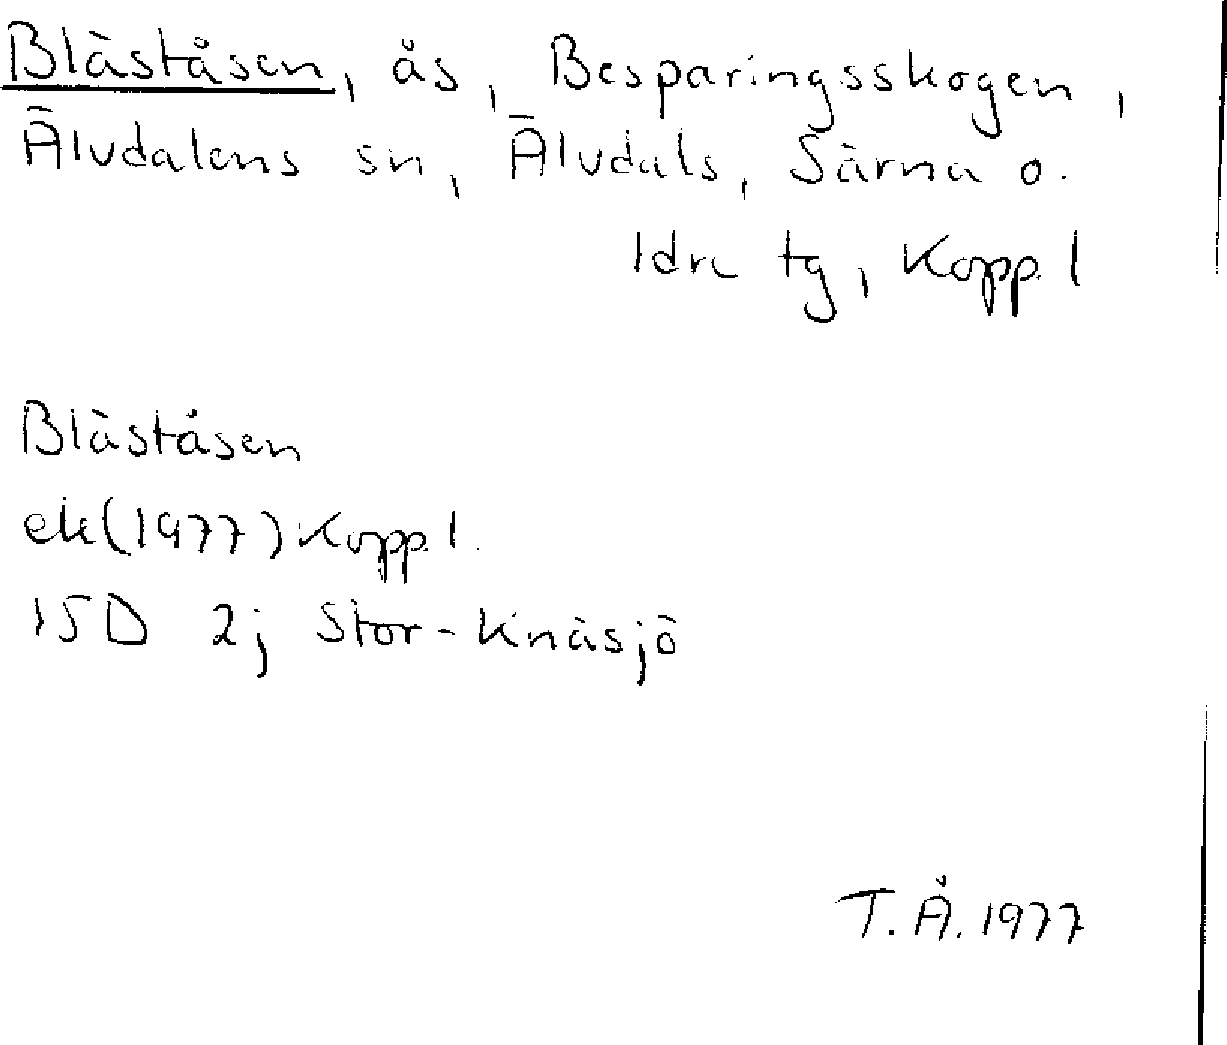 Bläståsen, ås, Besparingsskogen,
Älvdalens sn, Älvdals, Särna o.
Idre tg, Kopp. l
Bläståsen
ek(1977) Kopp. l.
15D 2j Stor-Knäsjö
T.Å. 1977